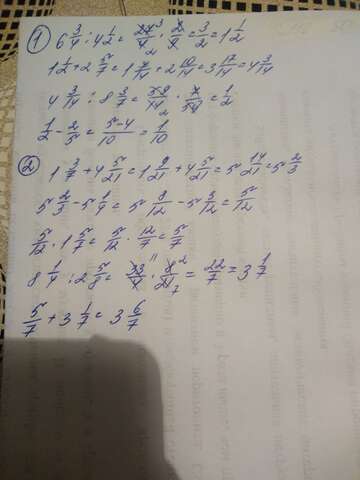 ① 6 3/4 : 4 1/2 = 27/4 · 2/9 = 3/2 = 1 1/2
1 1/2 + 2 5/7 = 1 7/14 + 2 10/14 = 3 17/14 = 4 3/14
4 3/14 : 8 3/7 = 59/14 · 7/59 = 1/2
1/2 - 2/5 = 5-4/10 = 1/10
② 1 3/7 + 4 5/21 = 1 9/21 + 4 5/21 = 5 14/21 = 5 2/3
5 2/3 - 5 1/4 = 5 8/12 - 5 3/12 = 5/12
5/12 · 1 5/7 = 5/12 · 12/7 = 5/7
8 1/4 : 2 5/8 = 33/4 · 8/21 = 22/7 = 3 1/7
5/7 + 3 1/7 = 3 6/7